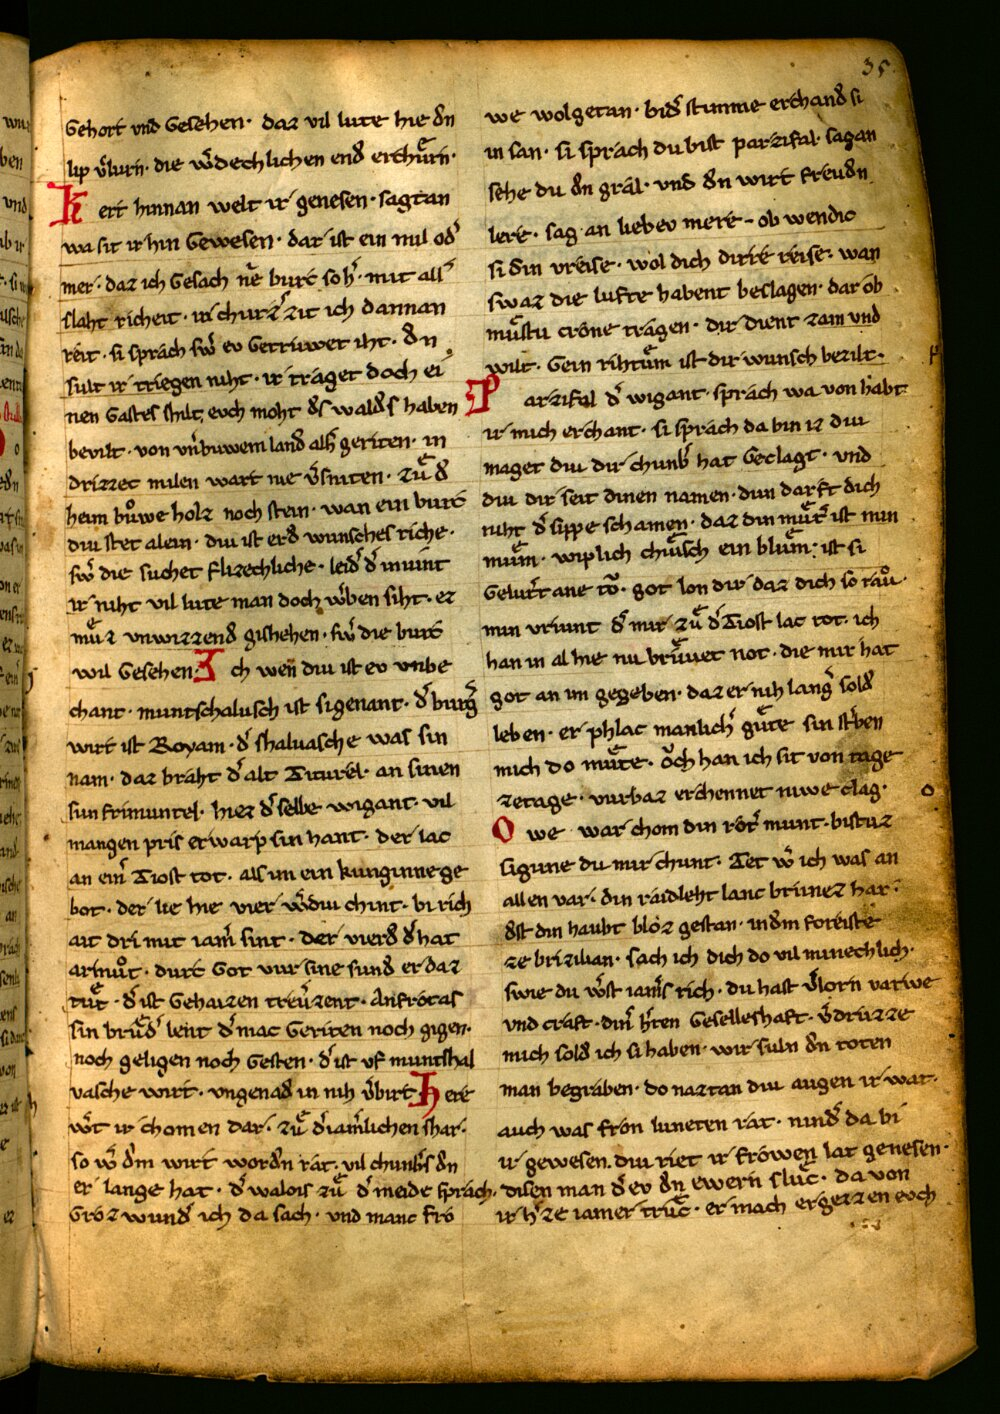 35
Gehort vnd Gesehen · daz vil lute hie dn
lip v̾lurn · die w̾dechlichen end erchůrn ·
Kert hinnan welt ir genesen · sagt an
wa sit ir hin Gewesen · dar ist ein mil od̾
mer · daz ich Gesach nie burc so her̾ · mit all̾
slaht richeit · in churzer̾ zit ich dannan
reit · si sprach sw̾ ev Getriwet iht · dn
sult ir triegen niht · ir traget doch ei
nen Gastes shilt, evch moht ds̾ wald̾s haben
bevilt · von vn̾buwem land als̾ geriten · in
drizzec milen wart nie v̾sniten · zů d̾
heim bůwe holz noch stein · wan ein burc
diu stet alein · diu ist erd̾ wunsches riche ·
sw̾ die suchet flizechliche · leid̾ d̾ invint
ir niht vil lute man doch w̾ben siht · ez
můz vnwizzend gishehen · sw̾ die burc
wil Gesehen · Ich wen diu ist ev vnbe
chant · muntschalusch ist si genant · d̾ burg̾
wirt ist Royam · d̾ shaluasche was sin
nam · daz braht d̾ alt Titurel · an sinen
sun frimuntel · hiez d̾ selbe wigant · vil
mangen pris erwarp sin hant · der lac
an eim̾ Tiost tot · als im ein kunginne ge
bot · der lie hie vier w̾diu chint · bi rich
ait dri mit iam̾ sint · der vierd d̾ hat
armůt · durc Got vur sine sund er daz
tůt · d̾ ist Gehaizen trev̾zent · Anfrotas
sin brůd̾ leint d̾ mac Geriten noch gigen ·
noch geligen noch Gesten · d̾ ist vf muntshal
vasche wirt · vngenad in nih v̾birt Here
w̾t ir chomen dar · zů d̾ iam̾lichen shar ·
so w̾ dm wirt wordn rat · vil chumb̾s dn
er lange hat · d̾ walois zů d̾ meide sprach ·
Groz wund̾ ich da sach · vnd manc fro
we wolgetan · bid̾ stimme erchand si
in san · si sprach du bist parzifal · sag an
sehe du dn gral · vnd dn wirt freudn
lere · sag an liebev mere – ob wendic
si din vreise · wol dich dirre reise · wan
swaz die lufte habent beslagen · dar ob
můstu crone tragen · dir dient zam vnd
wilt · Gein rihtům ist dir wunsch bezilt ·
Parzifal d̾ wigant · sprach wa von habt
ir mich erchant · si sprach da bin iz diu
maget diu dir chumb̾ hat Geclagt · vnd
diu dir seit dinen namen · dun darft dich
niht d̾ sippe schamen · daz din můt̾ ist min
mům · wiplich chůsch ein blům : ist si
Gelutt̾ ane to · got lon dir daz dich so rau ·
min vriunt d̾ mir zů d̾ Tiost lac tot · ich
han in al hie nu brůuet not · die mir hat
got an im gegeben · daz er nih lang̾ sold
leben · er phlac manlich̾ gůte sin st̾ben
mich do můte · och han ich sit von tage
zetage · vurbaz erchennet niwe clag ·
Owe war chom din rot̾ munt · bistuz
sigune du mir chunt · Tet w̾ ich was an
allen var · din raidleht lanc brunez har ·
dst din haubt bloz gestan · indm foreiste
ze brizilian · sach ich dich do vil minechlich ·
swie du w̾st iam̾s rich · du hast v̾lorn varwe
vnd craft · dinr̾ h̾ten Geselleshaft · v̾druzze
mich sold ich si haben · wir suln dn toten
man begraben · do naztan diu augen ir wat ·
auch was fron luneten rat · nind̾ da bi
ir gewesen · diu riet ir frowen lat genesen ·
disen man d̾ ev dn ewern sluc · da von
ir h̾ze iamer truc · er mach ergezzen evch